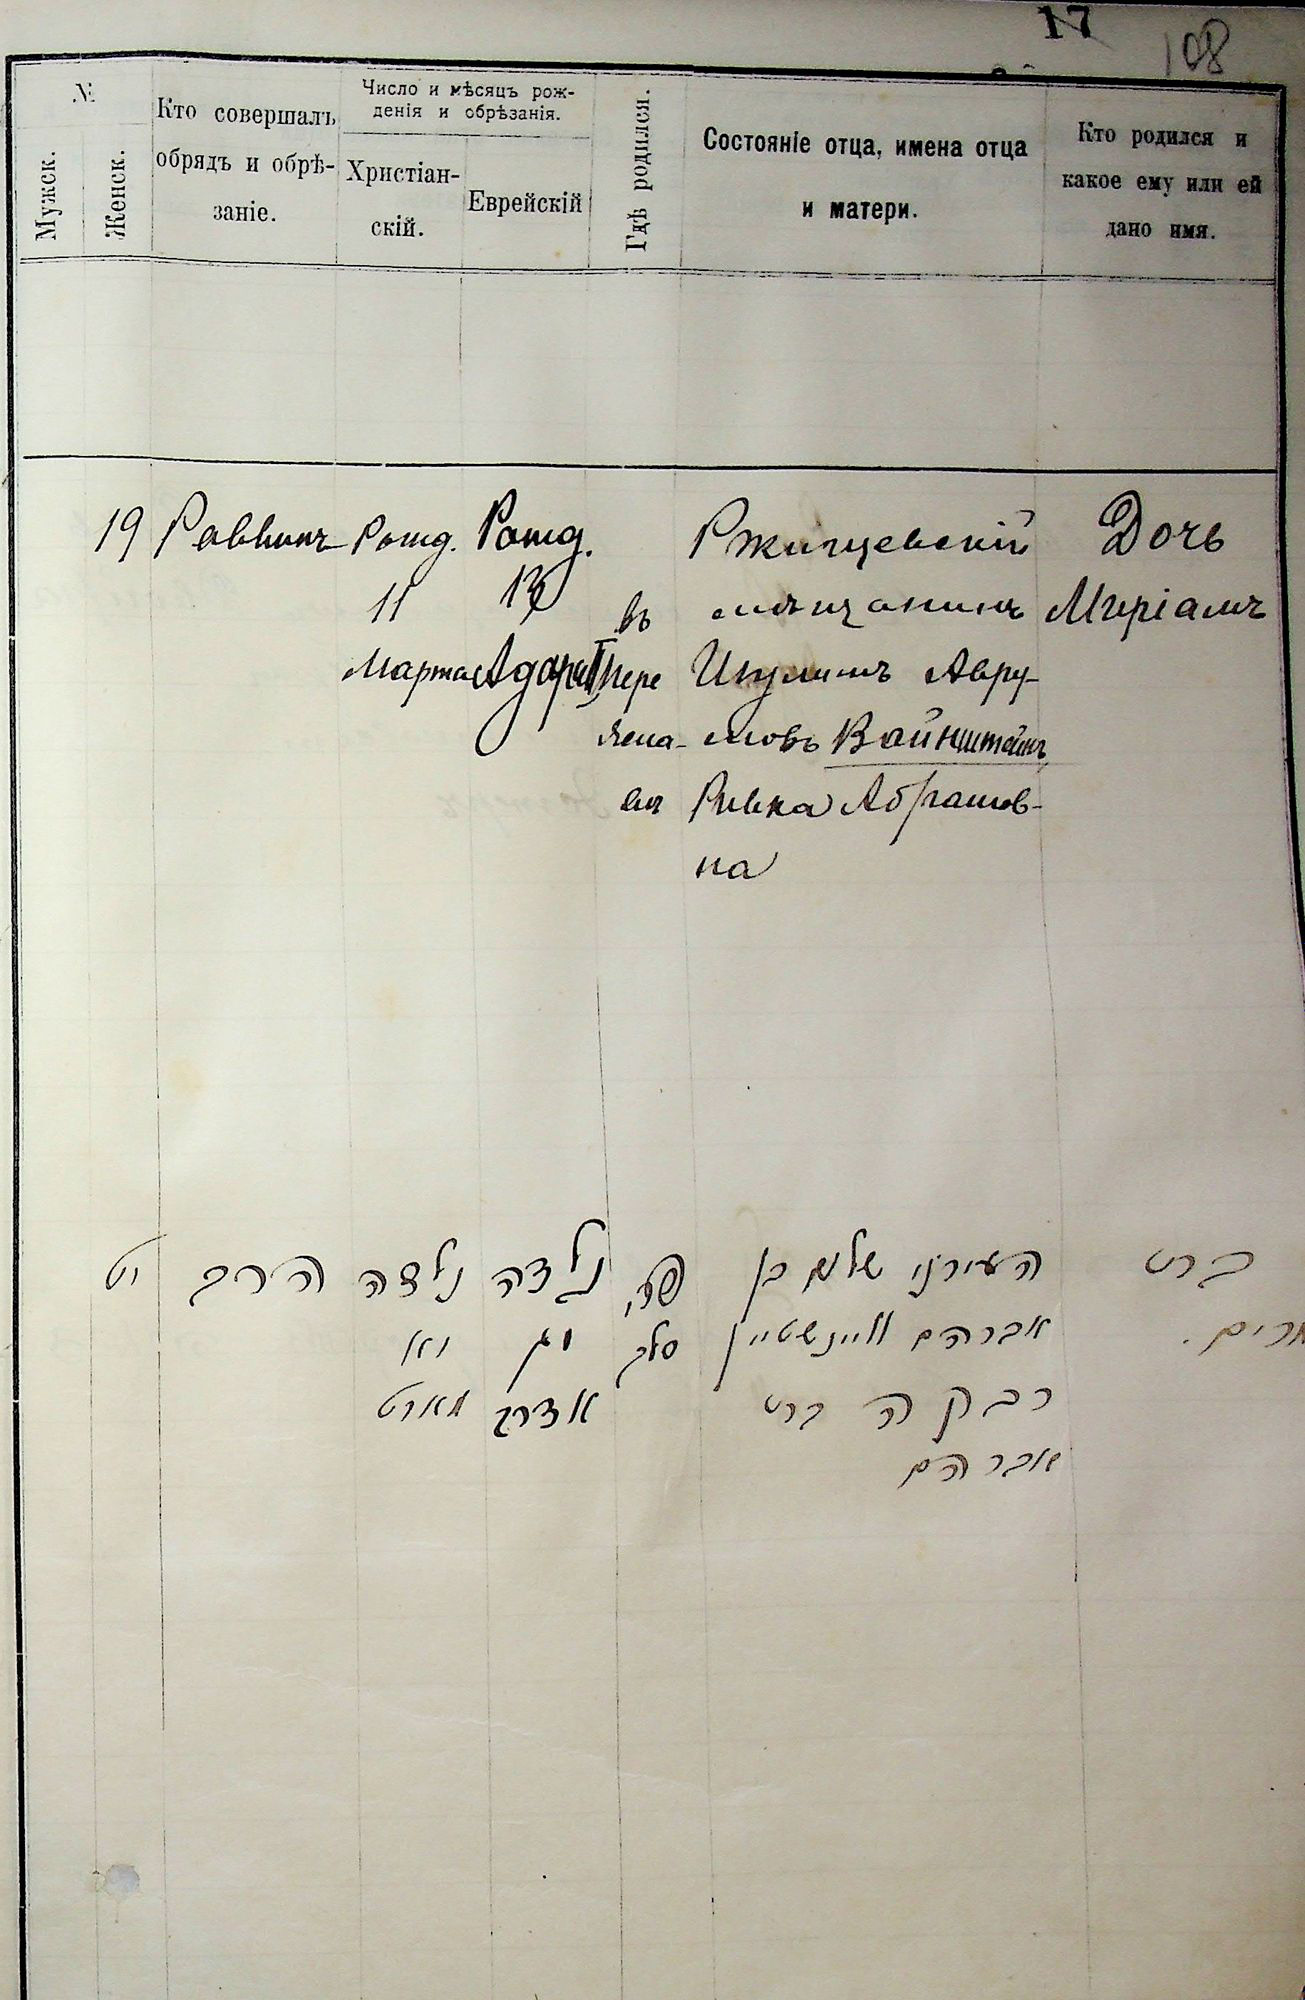 17
108
№
Мужск.
Женск.
Кто совершалъ
обрядъ и обрѣ-
заніе.
Число и мѣсяцъ рож-
денія и обрѣзанія.
Христіан-
скій.
Еврейскій
Гдѣ родился.
Состояніе отца, имена отца
и матери.
Кто родился и
какое ему или ей
дано имя.
19
Раввинъ
Рожд.
11
Марта
Рожд.
13
Адара II
въ
Пере
яслa-
вѣ
Ржищевскій
мѣщанинъ
Шулимъ Авру-
мовъ Вайнштейнъ
Ривка Абрамов-
на
Дочь
Миріамъ
יט
הרב
נולדה
יא
מארט
נולדה
יג
אדר
סלב
העירני שלום בן
אברהם וויינשטיין
רבקה בת
אברהם
בת
מרים.